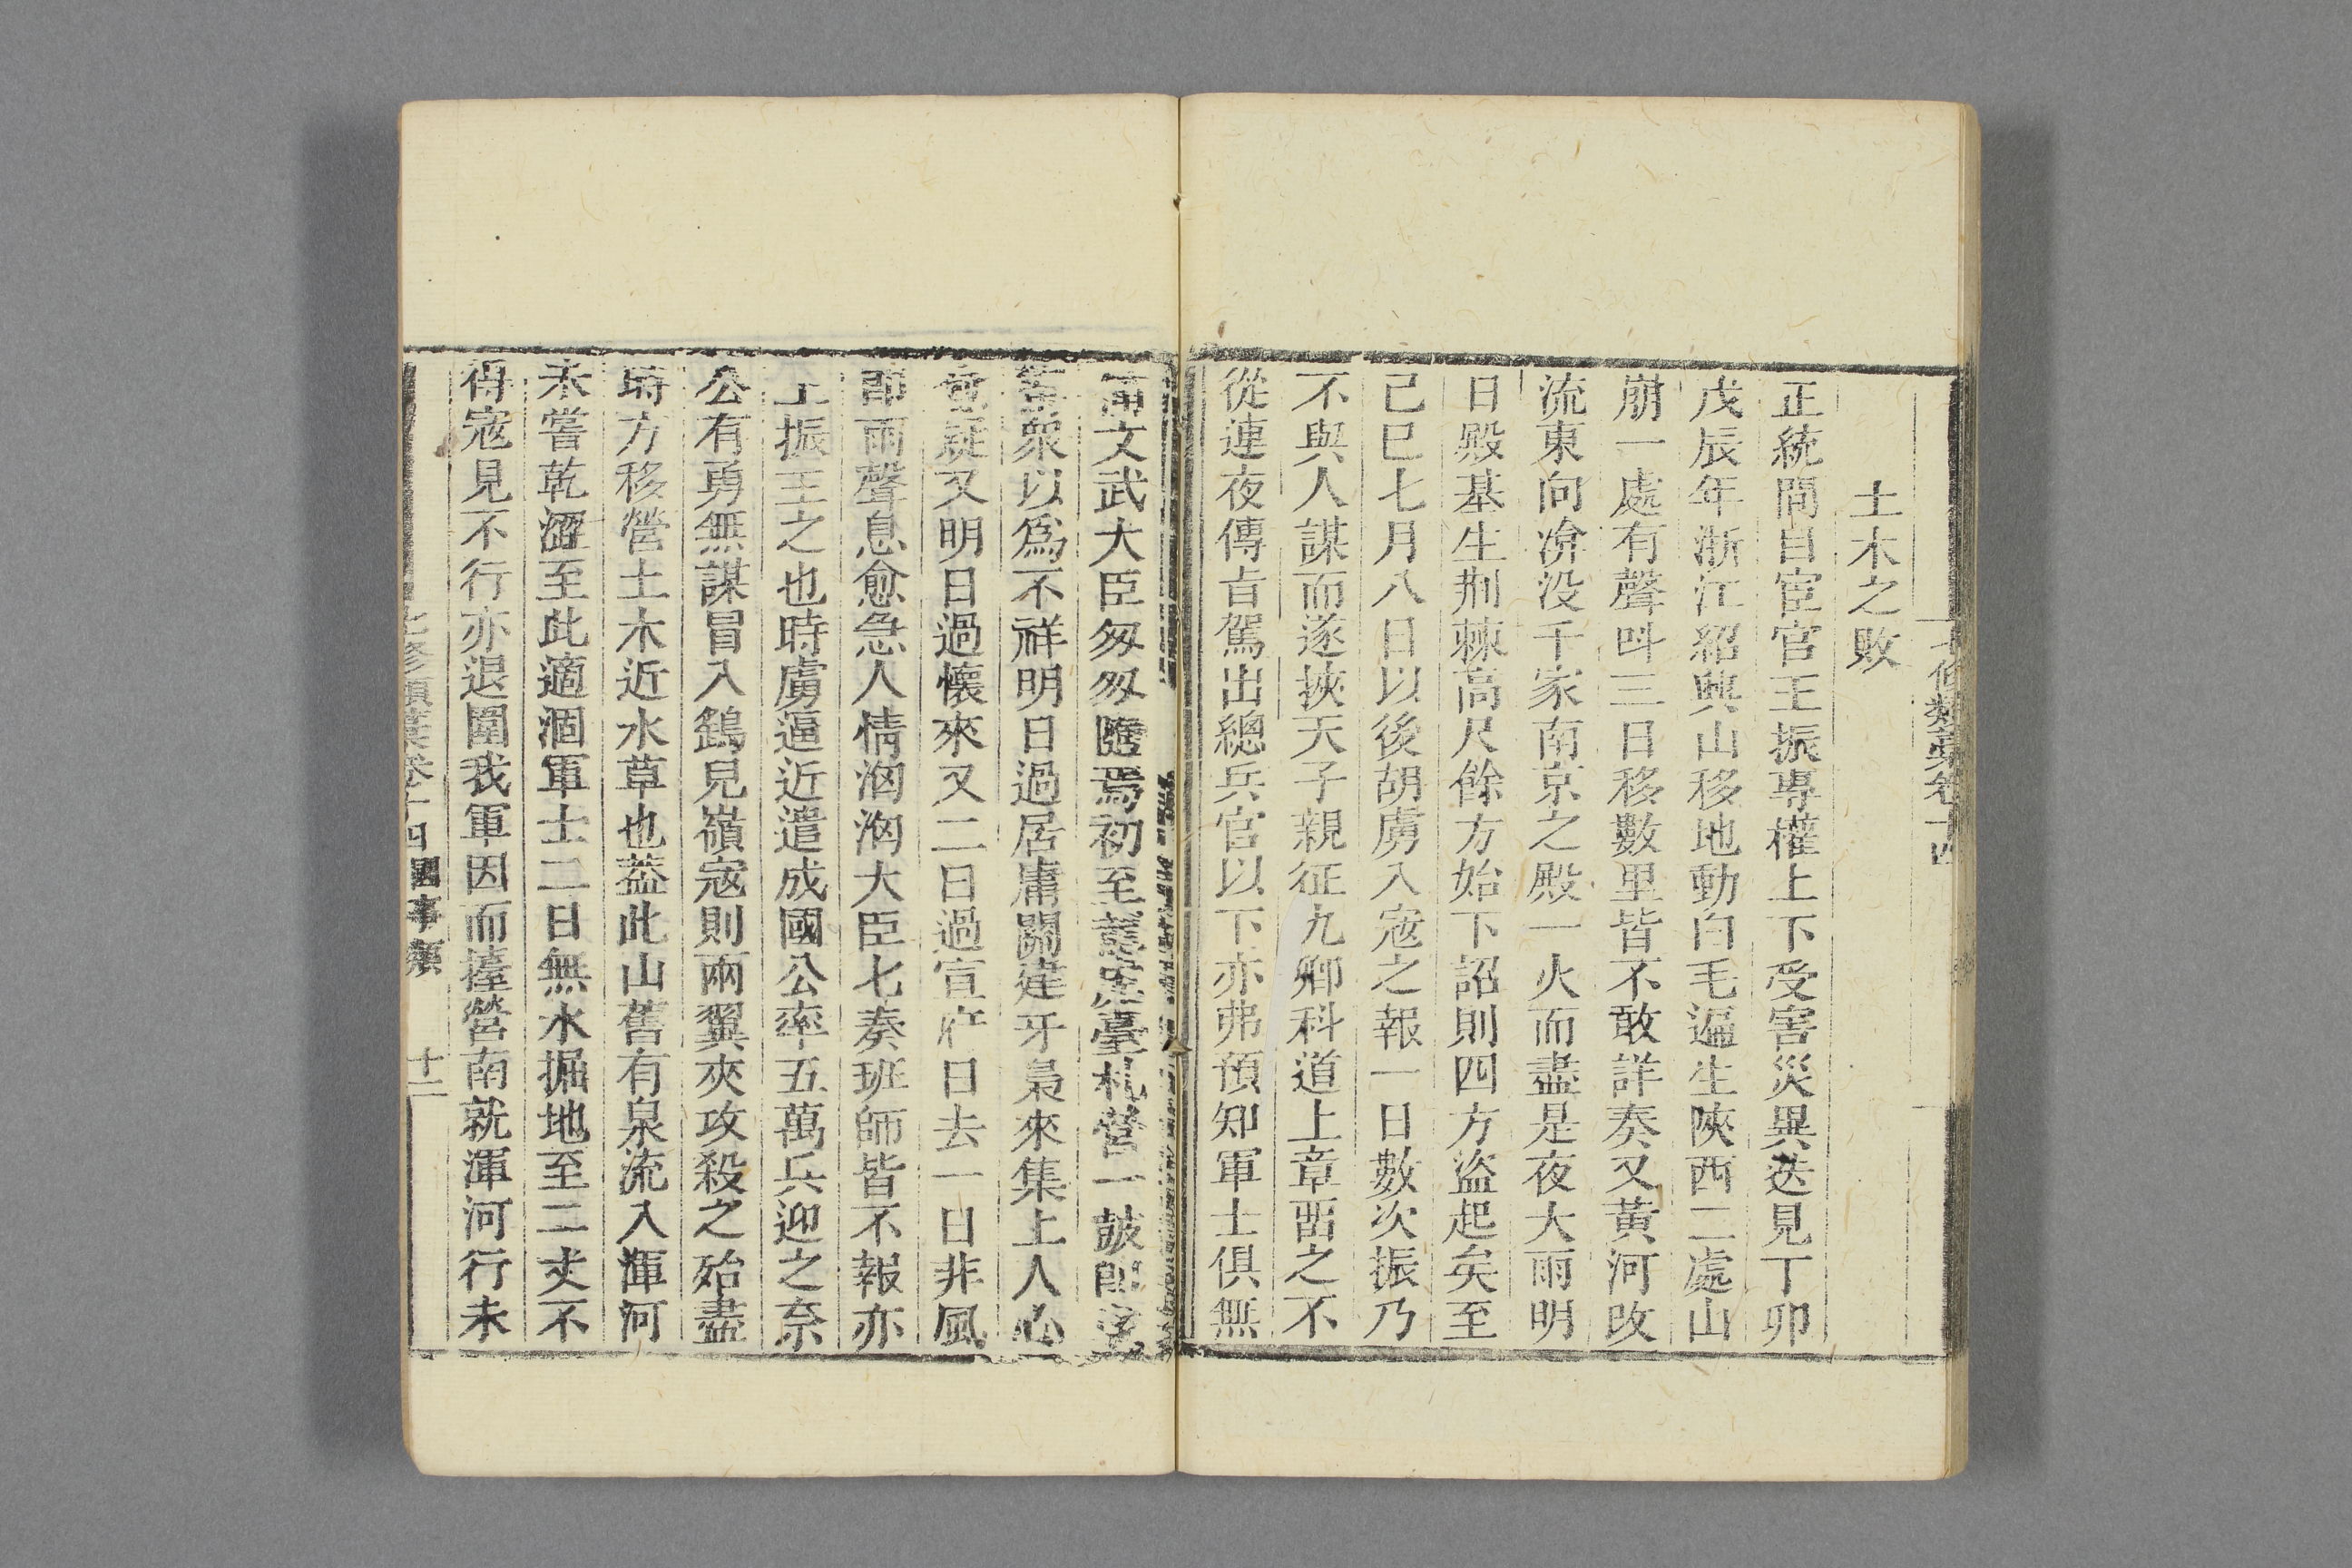 七修類藁卷十四
土木之敗
正統間自宦官王振專權上下受害災異迭見丁卯
戊辰年浙江紹興山移地動白毛遍生陝西二處山
崩一處有聲呌三日移數里皆不敢詳奏又黃河改
流東向渰没千家南京之殿一火而盡是夜大雨明
日殿基生荆棘高尺餘方始下詔則四方盜起矣至
己巳七月八日以後胡虜入宼之報一日數次振乃
不與人謀而遂挾天子親征九卿科道上章畱之不
從連夜傳旨駕出總兵官以下亦弗預知軍士俱無
文武大臣匆匆隨焉初至臺札營一鼓即
衆以爲不祥明日過居庸關建牙梟來集上人心
疑又明日過懷來又二日過宣府日去一日非風
即雨聲息愈急人情洶洶大臣七奏班師皆不報亦
王振主之也時虜逼近遣成國公率五萬兵迎之奈
公有勇無謀冒入鷂兒嶺宼則兩翼夾攻殺之殆盡
時方移營土木近水草也葢此山舊有泉流入渾河
未嘗乾澀至此適涸軍士二日無水掘地至二丈不
得宼見不行亦退圍我軍因而擡營南就渾河行未
七修類藁卷十四 國事類 十二